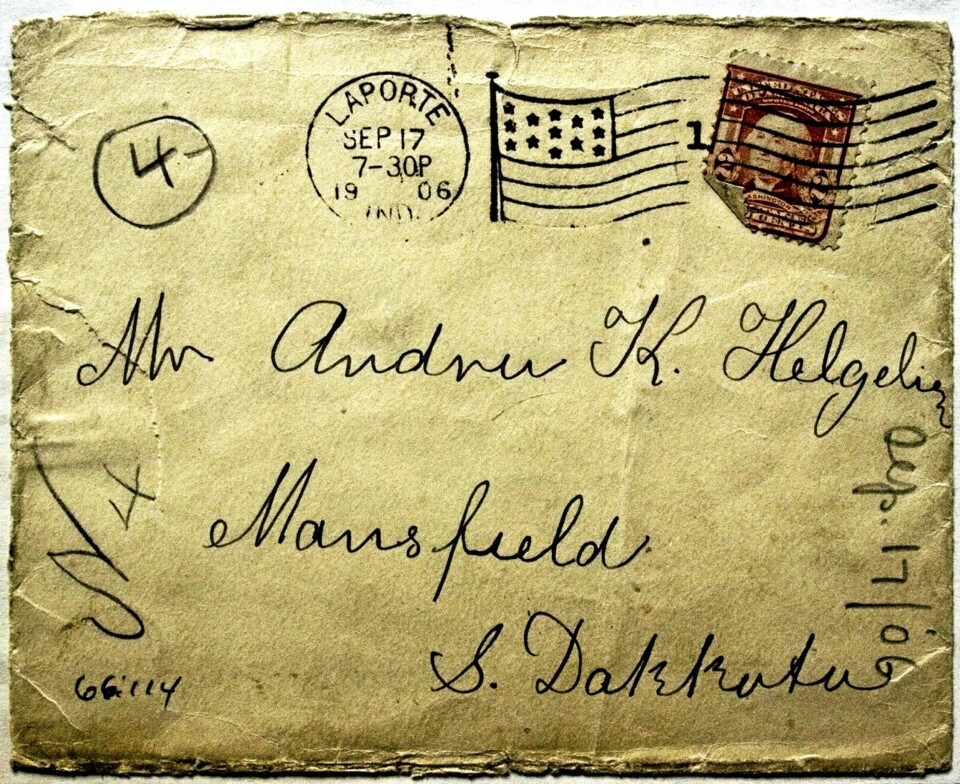 4
LAPORTE
SEP 17
7-30P
19 06
IND.
1
Mr Andrew K. Helgelien
Mansfield
S. Dakkota
4
66.114
Sep. 17/06